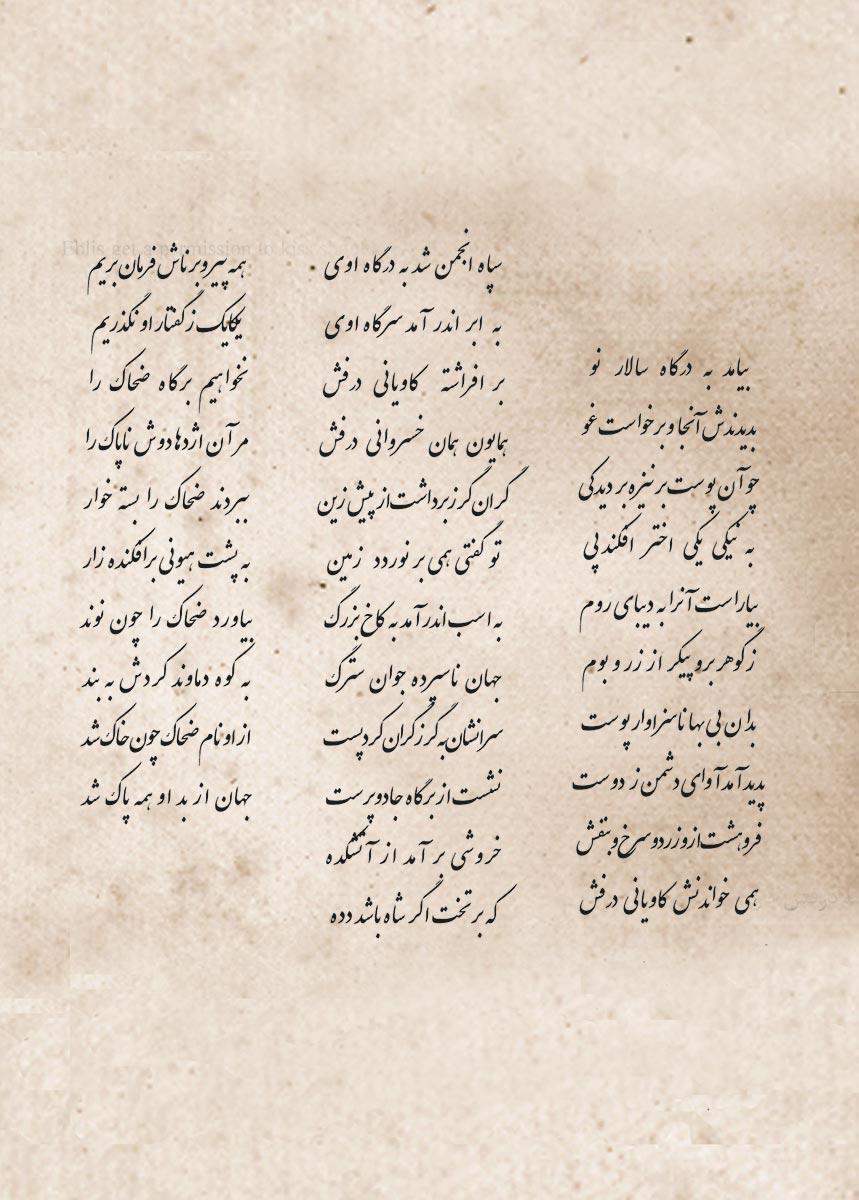 بیامد به درگاه سالار نو
بدیدندش آنجا و برخاست غو
چو آن پوست بر نیزه بر دید کی
به نیکی یکی اختر افکند پی
بیاراست آنرا به دیبای روم
ز گوهر برو پیکر از زر و بوم
بدان بی بها ناسزاوار پوست
پدید آمد آوای دشمن ز دوست
فروهشت ازو زرد و سرخ و بنفش
همی خواندنش کاویانی درفش
سپاه انجمن شد به درگاه اوی
به ابر اندر آمد سرگاه اوی
بر افراشته کاویانی درفش
همایون همان خسروانی درفش
گران گرز برداشت از پیش زین
تو گفتی همی بر نوردد زمین
به اسب اندر آمد به کاخ بزرگ
جهان ناسپرده جوان سترگ
سرانشان به گرز گران کرد پست
نشست از برگاه جادوپرست
خروشی بر آمد از آتشکده
که بر تخت اگر شاه باشد دده
همه پیر و برناش فرمان بریم
یکایک ز گفتار او نگذریم
نخواهیم برگاه ضحاک را
مر آن اژدها دوش ناپاک را
ببردند ضحاک را بسته خوار
به پشت هیونی برافکنده زار
بیاورد ضحاک را چون نوند
به کوه دماوند کردش به بند
از او نام ضحاک چون خاک شد
جهان از بد او همه پاک شد
Eblis get a permission to kiss